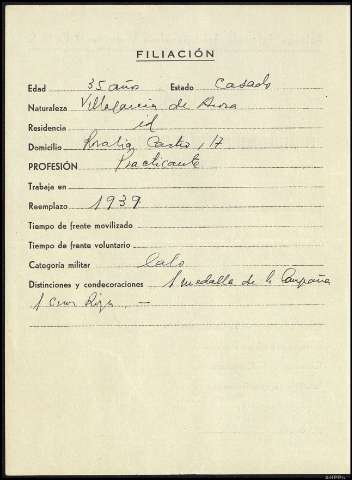 FILIACIÓN
Edad 35 años Estado Casado
Naturaleza Villagarcia de Arosa
Residencia id
Domicilio Rosalia Castro, 17
PROFESIÓN Practicante
Trabaja en
Reemplazo 1939
Tiempo de frente movilizado
Tiempo de frente voluntario
Categoría militar Cabo
Distinciones y condecoraciones 1 medalla de la Campaña
1 Cruz Roja —